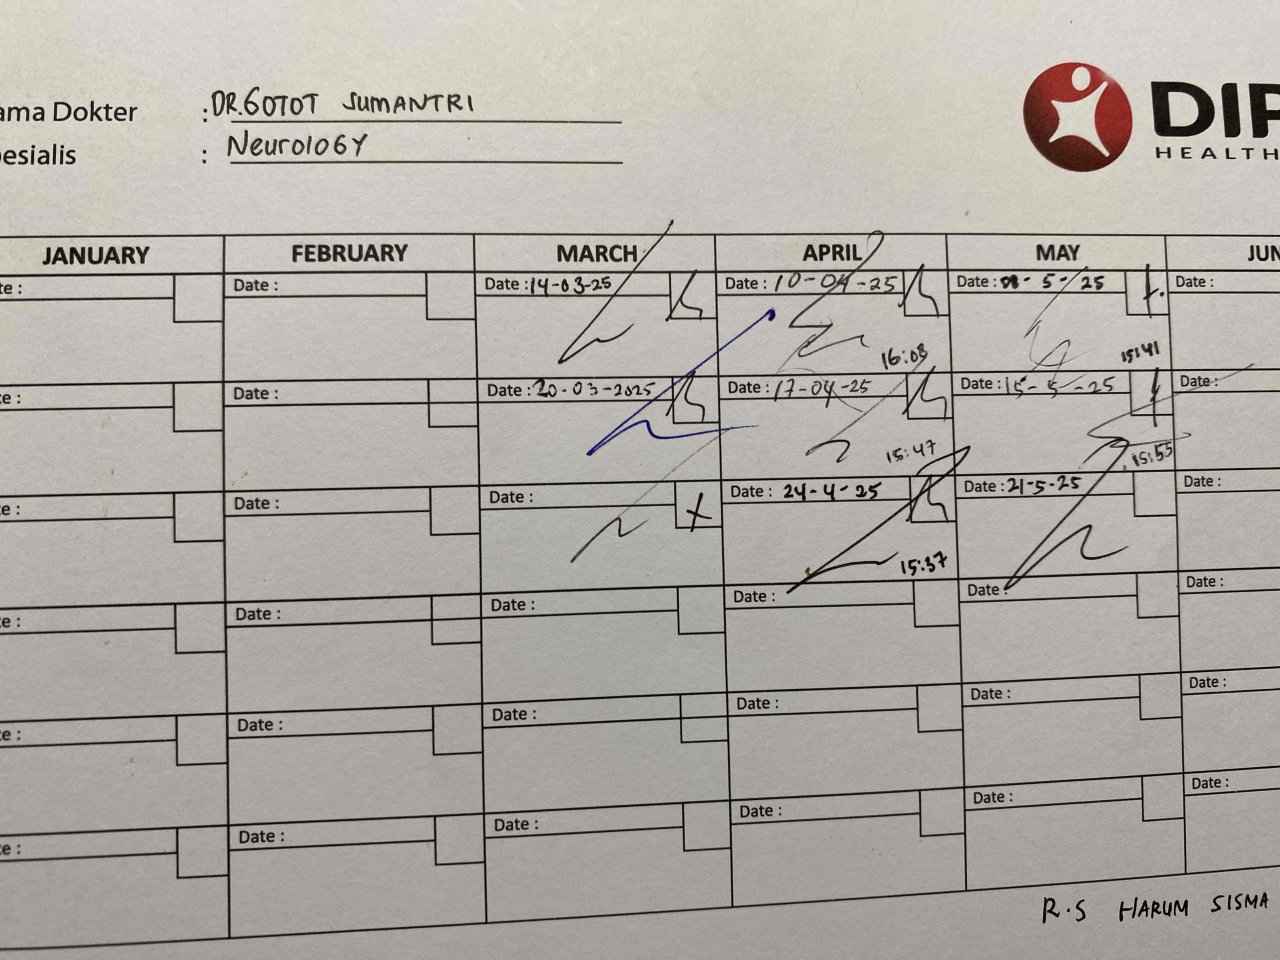 ama Dokter : DR.GOTOT SUMANTRI
esialis : NeuroloGY
DIP
HEALTH
JANUARY FEBRUARY MARCH APRIL MAY JUN
te : Date : Date : 14-03-25 Date : 10-04-25 Date : 5-25 Date :
16:08 15:41
te : Date : Date : 20-03-2025 Date : 17-04-25 Date : 15-5-25 Date :
15:47 15:55
te : Date : Date : Date : 24-4-25 Date : 21-5-25 Date :
15:37
te : Date : Date : Date : Date : Date :
te : Date : Date : Date : Date : Date :
te : Date : Date : Date : Date : Date :
R.S HARUM SISMA